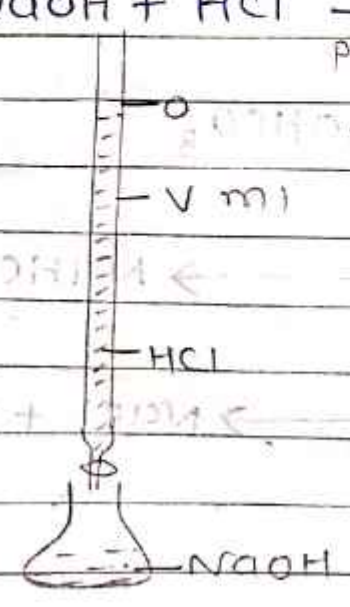 NaOH + HCl -
P
O
V ml
HCl
NaOH